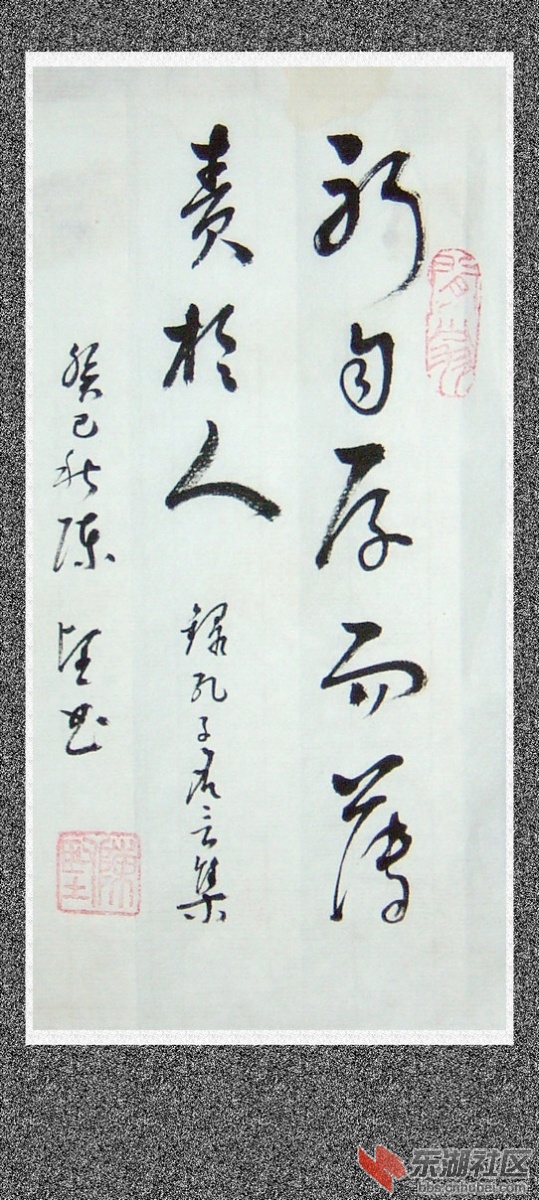 躬自厚而薄
責於人
錄孔子名言集
癸巳秋陳堅书
陳堅
东湖社区
bbs.cnhubei.com